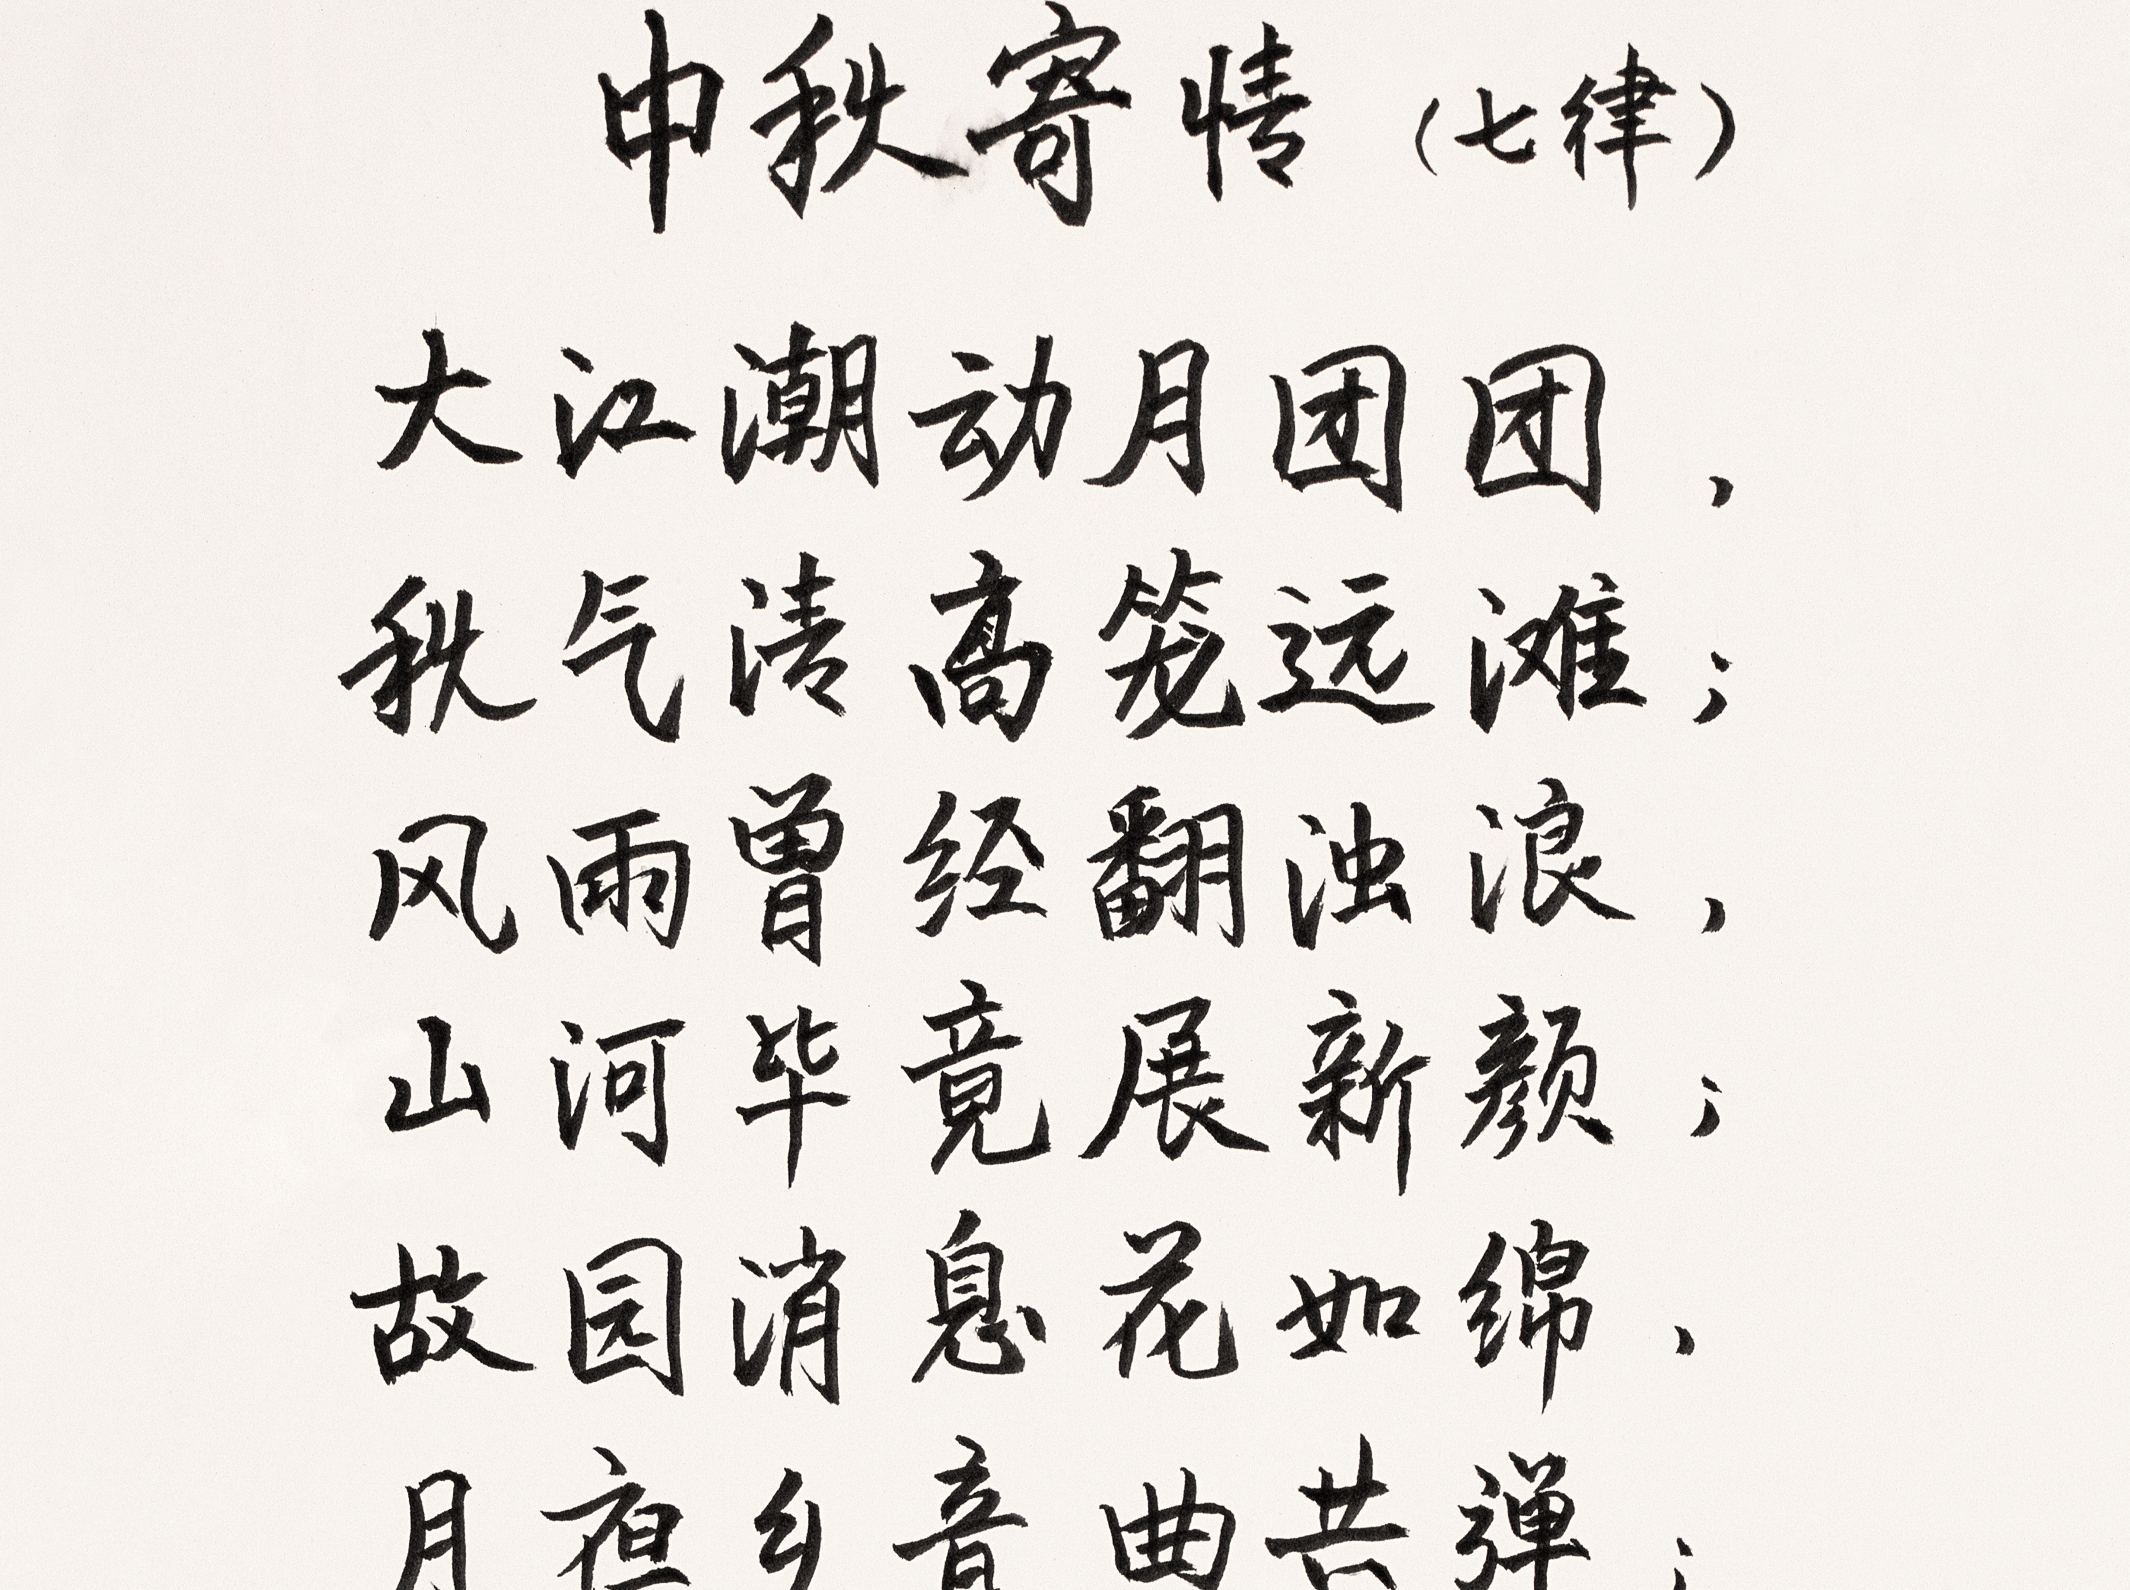 中秋寄情（七律）
大江潮动月团团，
秋气清高笼远滩；
风雨曾经翻浊浪，
山河毕竟展新颜；
故园消息花如绵，
月夜乡音曲共弹；